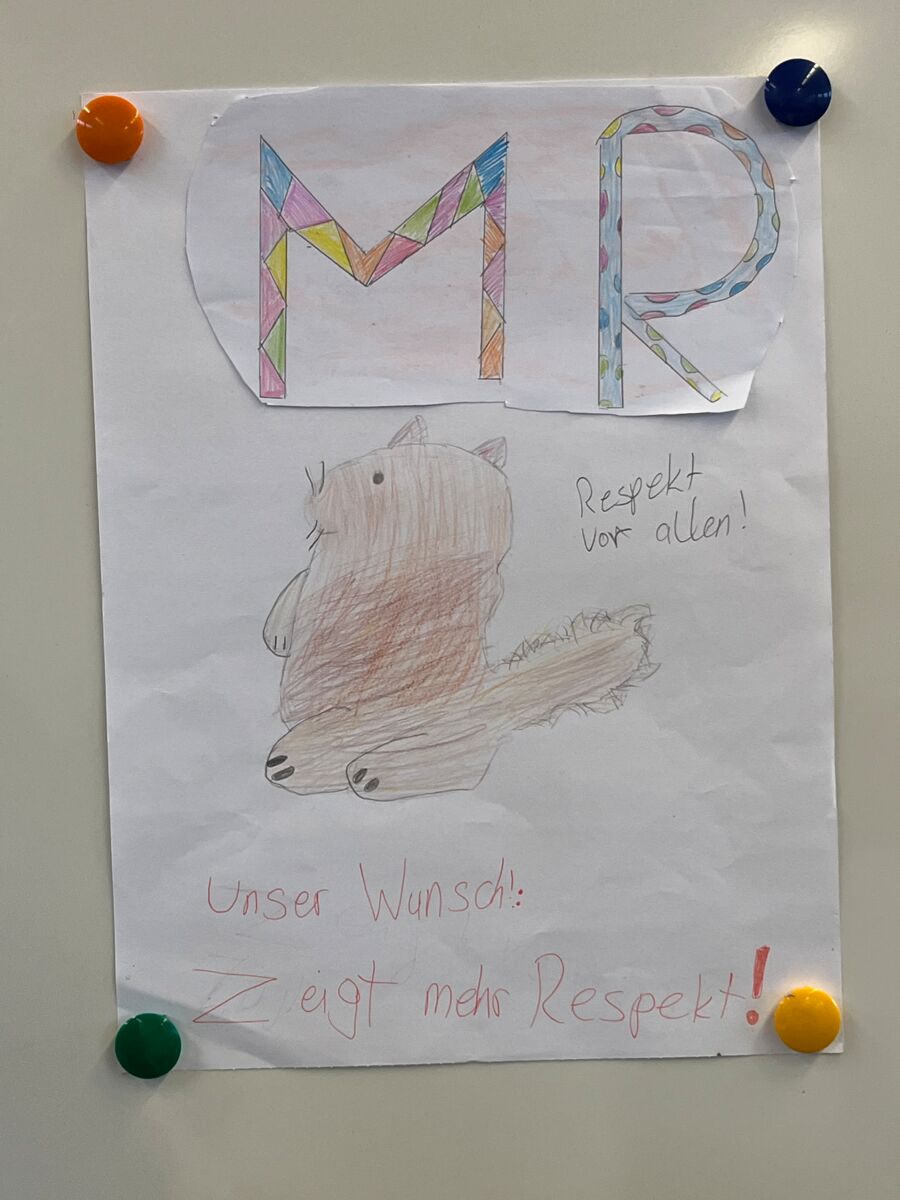 MR
Respekt
vor allen!
Unser Wunsch!:
Zeigt mehr Respekt!